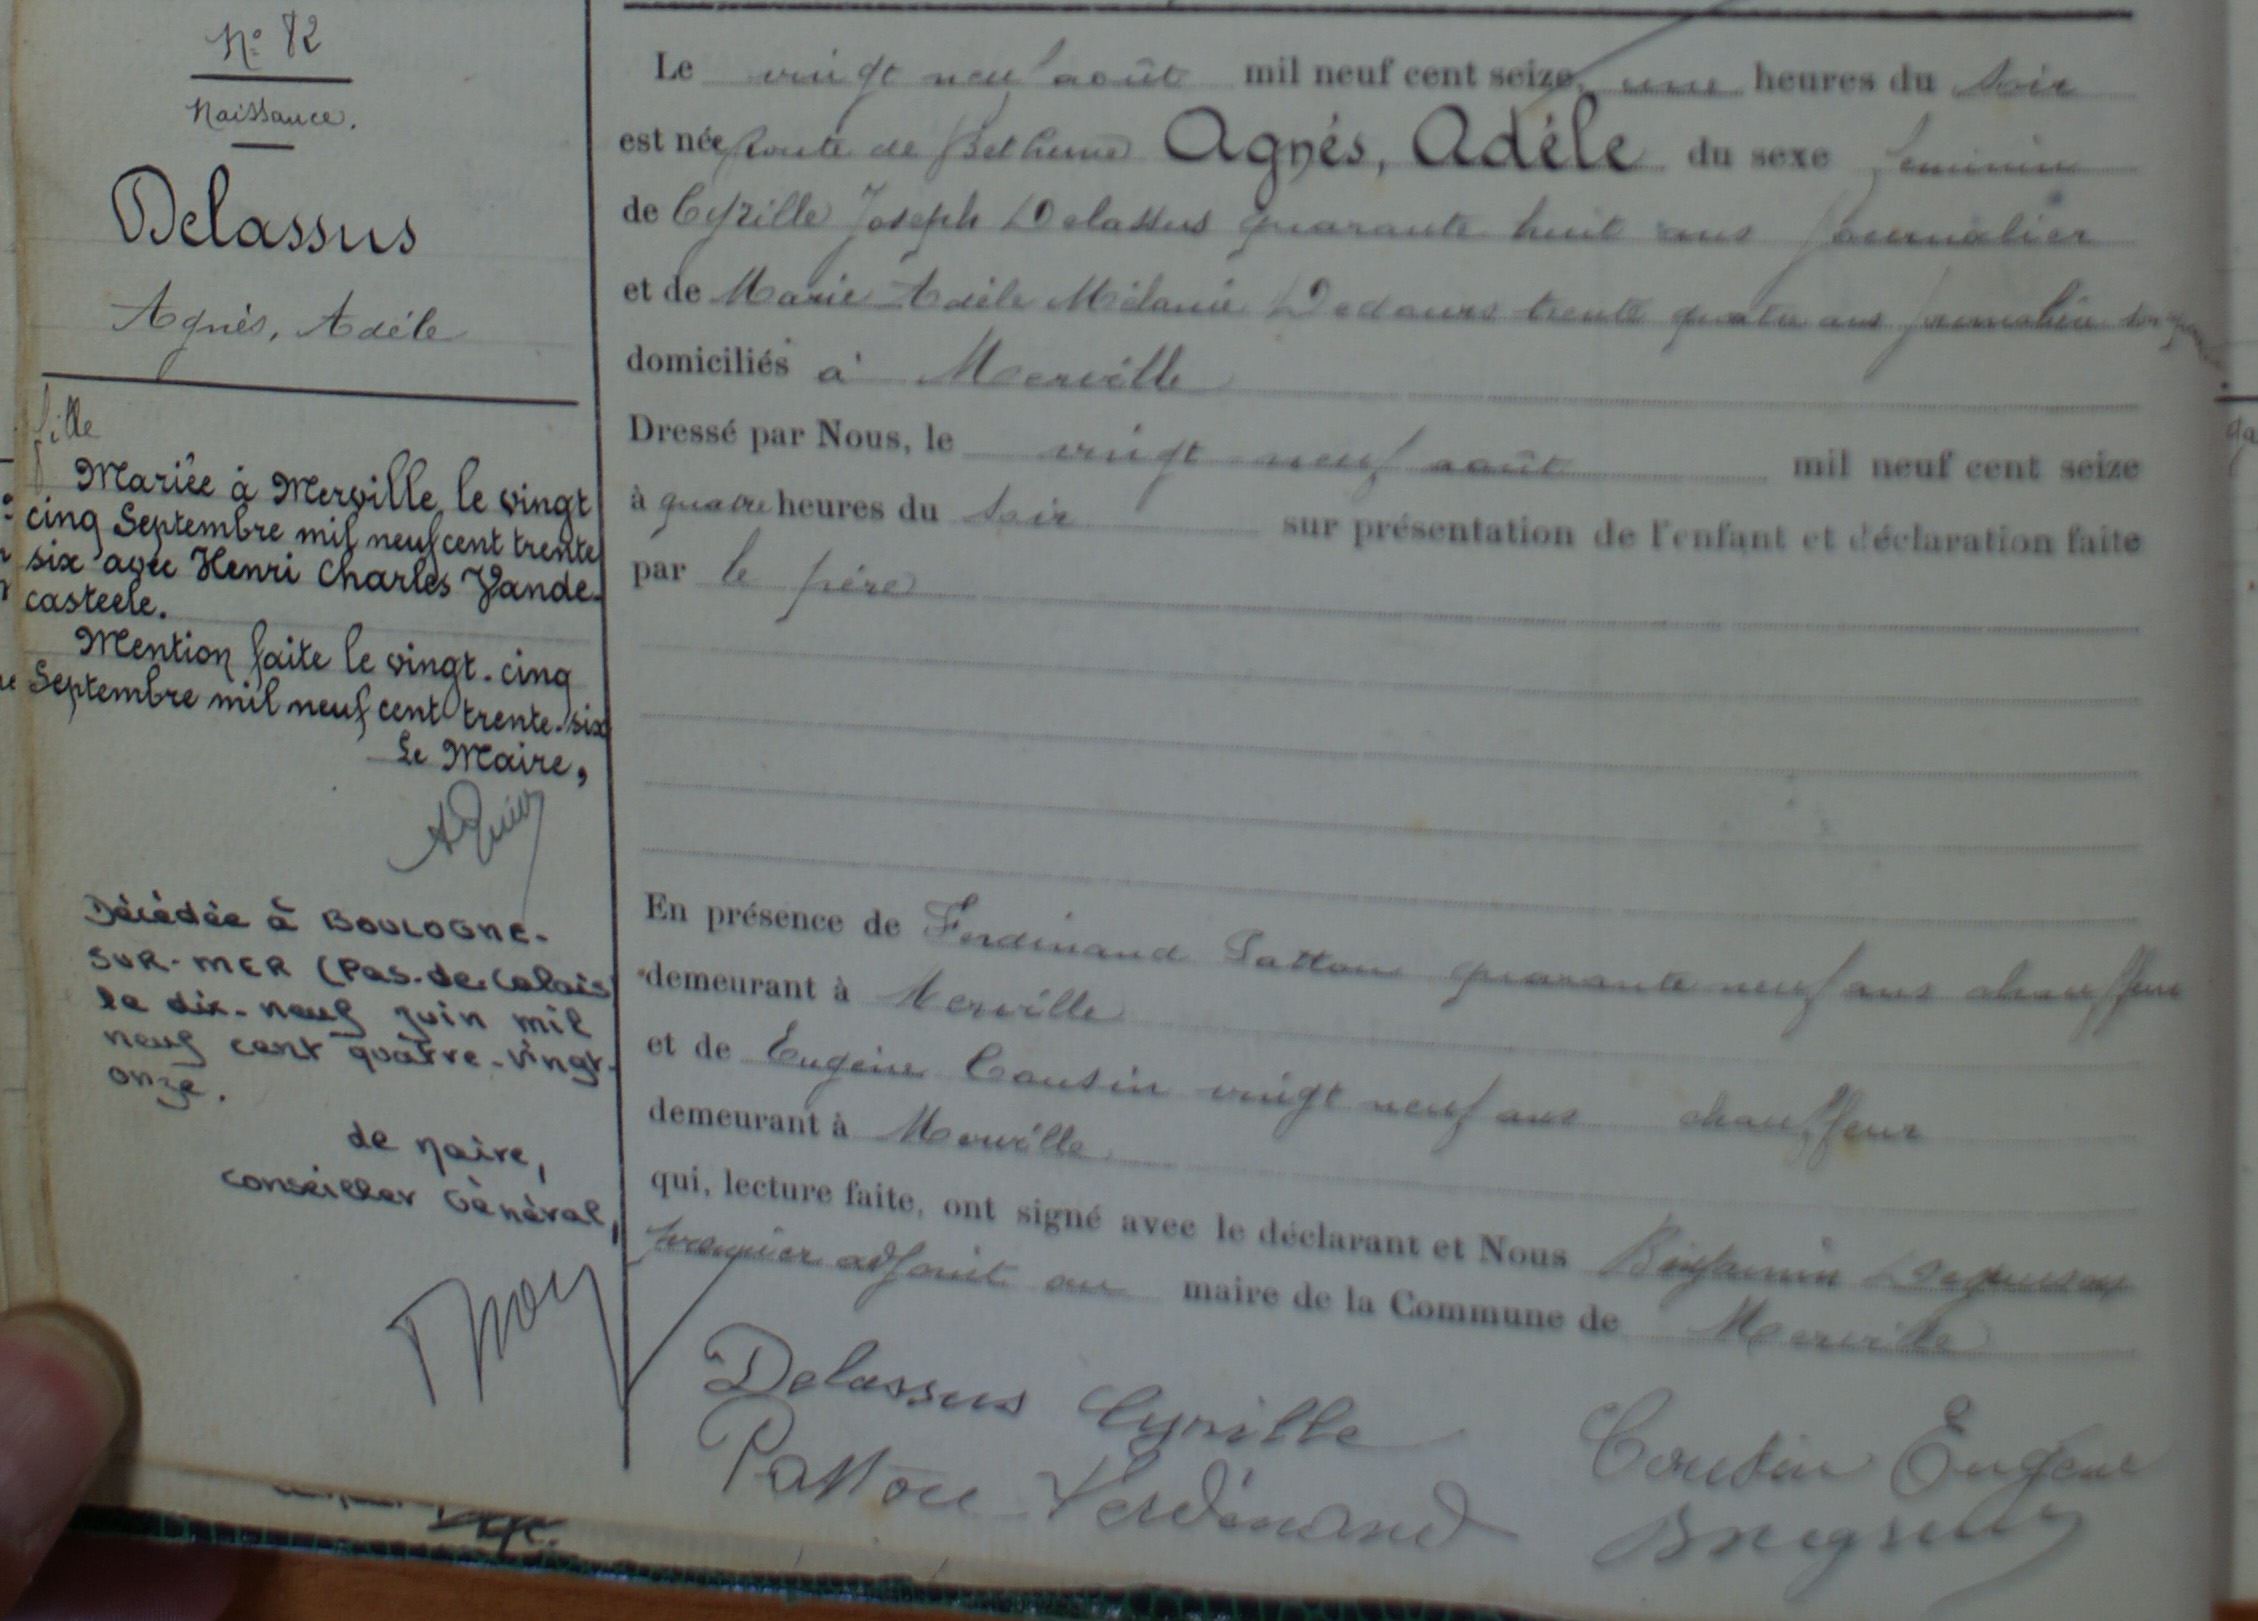 N° 82
Naissance.
Delassus
Agnès, Adèle
fille
Mariée à Merville, le vingt
cinq Septembre mil neuf cent trente
six avec Henri Charles Vande-
casteele.
Mention faite le vingt-cinq
Septembre mil neuf cent trente-six
Le Maire,
Décédée à BOULOGNE-
SUR-MER (Pas-de-Calais)
le dix-neuf juin mil
neuf cent quatre-vingt-
onze.
Le Maire,
Conseiller Général,
Le vingt neuf août mil neuf cent seize, une heures du soir
est née route de Béthune Agnès, Adèle du sexe féminin
de Cyrille Joseph Delassus quarante huit ans journalier
et de Marie Adèle Mélanie Dedours trente quatre ans journalière son
domiciliés à Merville
Dressé par Nous, le vingt-neuf août mil neuf cent seize
à quatre heures du soir sur présentation de l'enfant et déclaration faite
par le père
En présence de Ferdinand Pattou quarante neuf ans chauffeur
demeurant à Merville
et de Eugène Cousin vingt neuf ans chauffeur
demeurant à Merville
qui, lecture faite, ont signé avec le déclarant et Nous Benjamin
premier adjoint au maire de la Commune de Merville
Delassus Cyrille
Cousin Eugène
Pattou Ferdinand